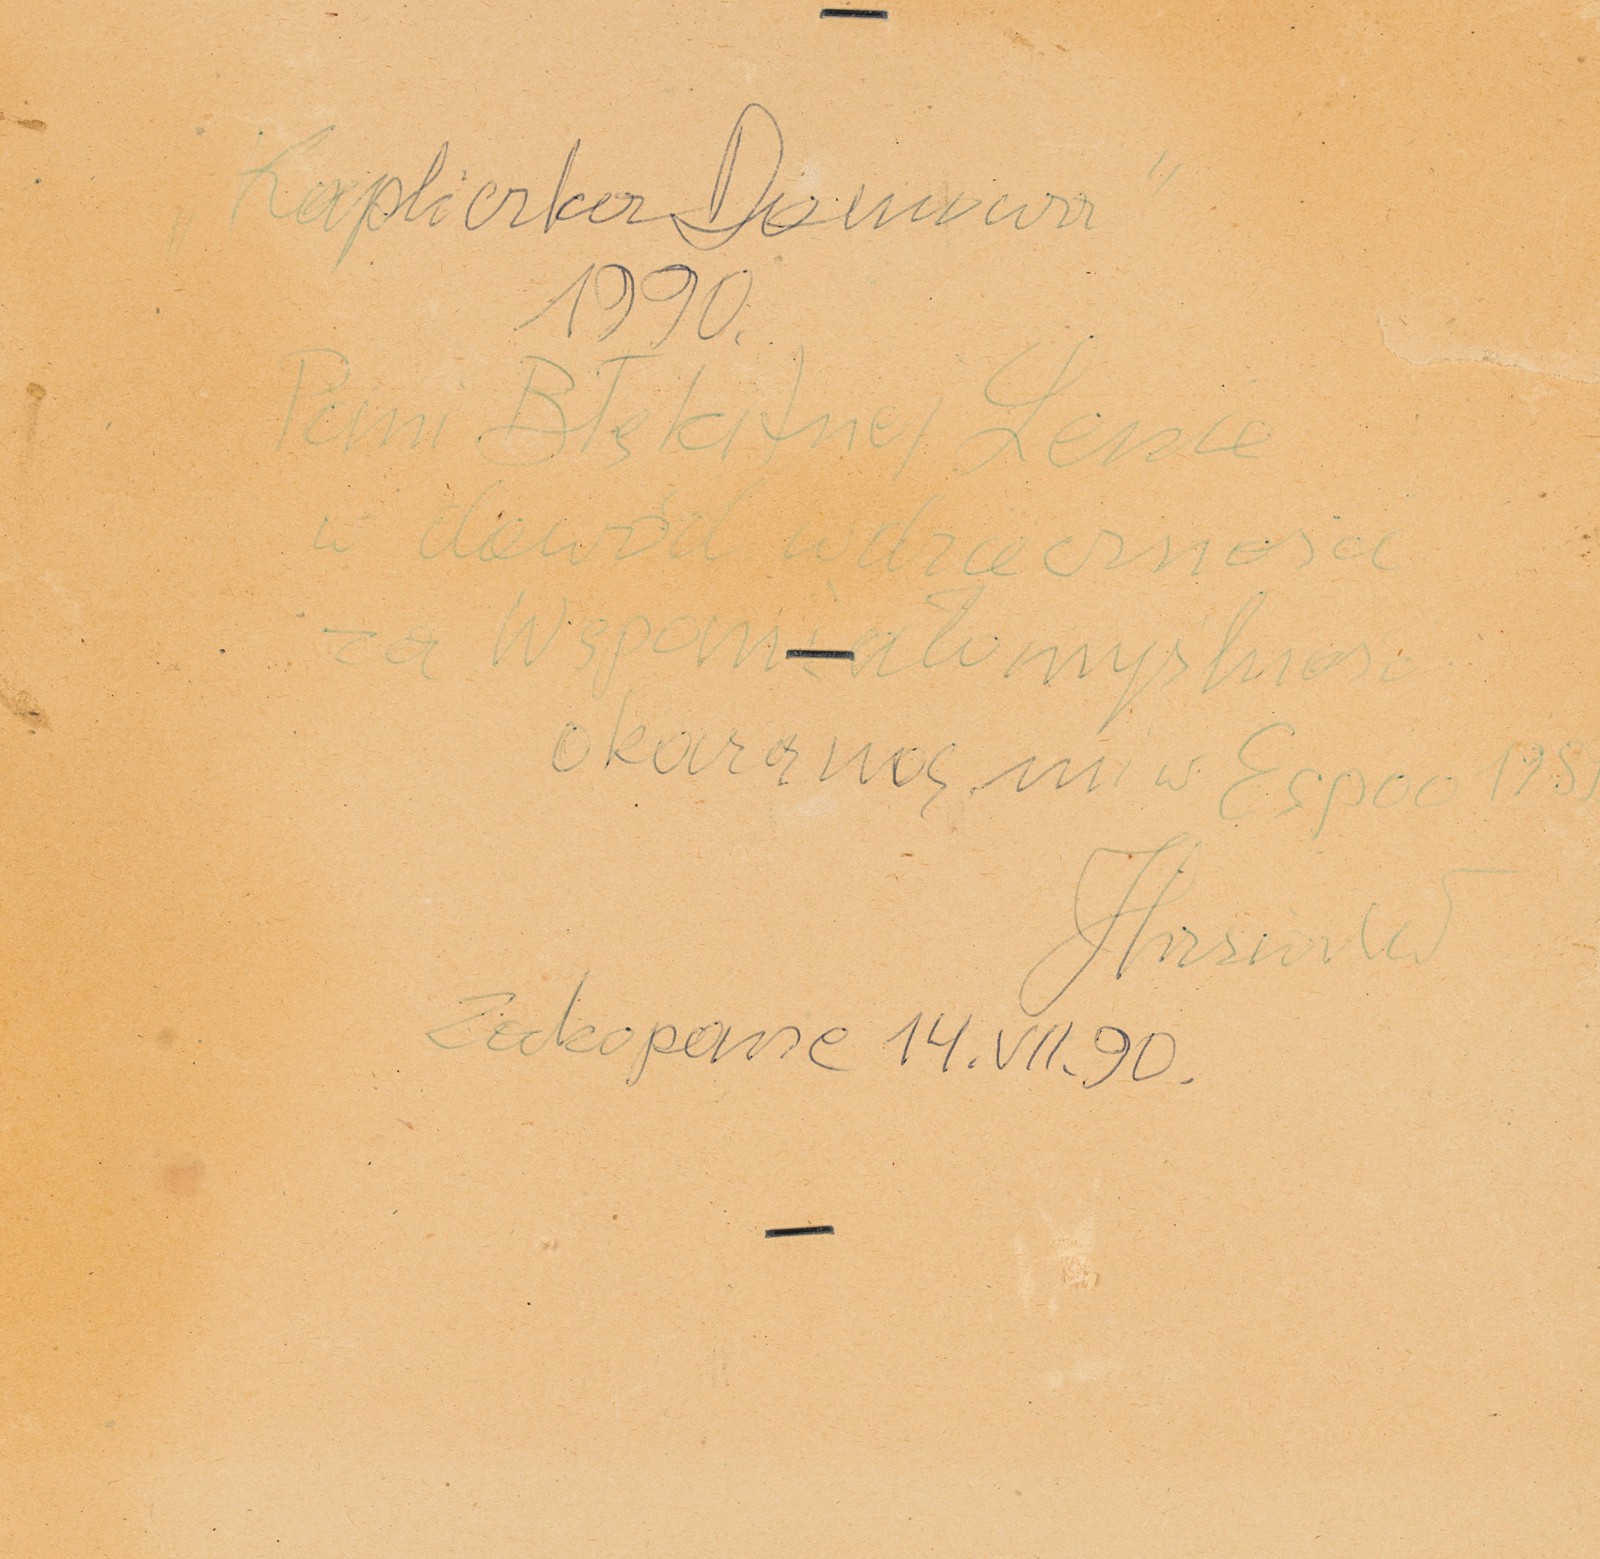 „Kapliczka Domowa”
1990.
Pani Błękitnej Lenie
w dowód wdzięczności
za Wspaniałomyślność
okazaną mi w Espoo
Zakopane 14.VII.90.